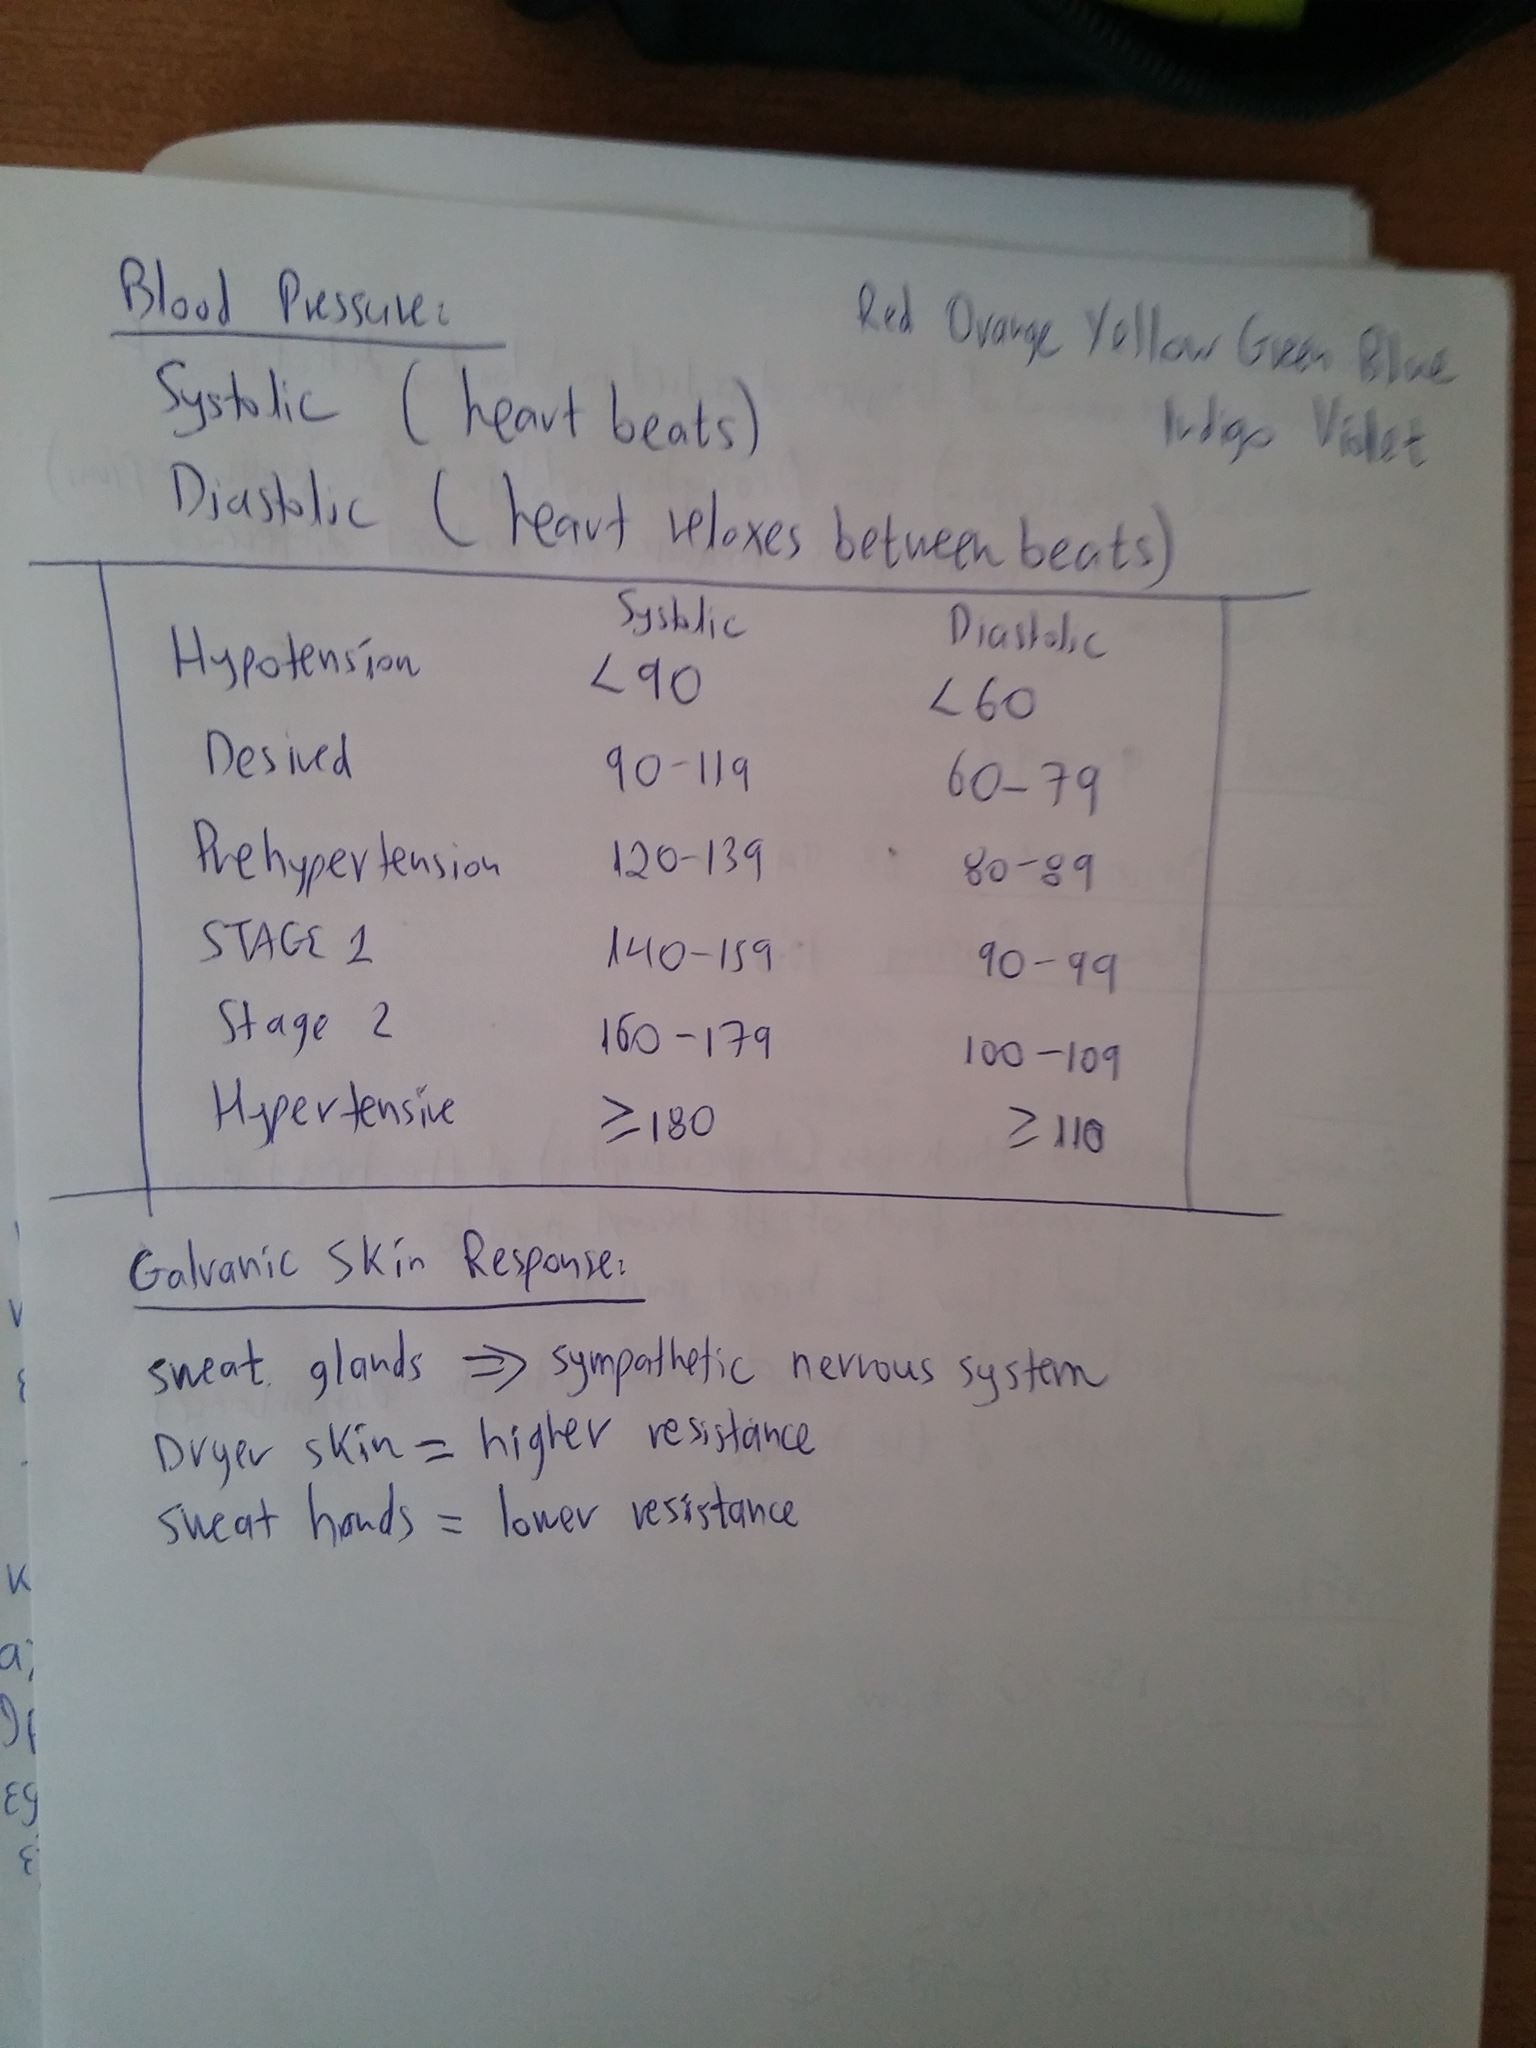 Blood Pressure:
Red Orange Yellow Green Blue
Indigo Violet
Systolic ( heart beats)
Diastolic ( heart reloxes between beats)
Systolic Diastolic
Hypotension <90 <60
Desired 90-119 60-79
Prehypertension 120-139 80-89
STAGE 1 140-159 90-99
Stage 2 160-179 100-109
Hypertensive ≥180 ≥110
Galvanic Skin Response:
sweat glands ⇒ sympathetic nervous system
Dryer skin = higher resistance
sweat hands = lower resistance